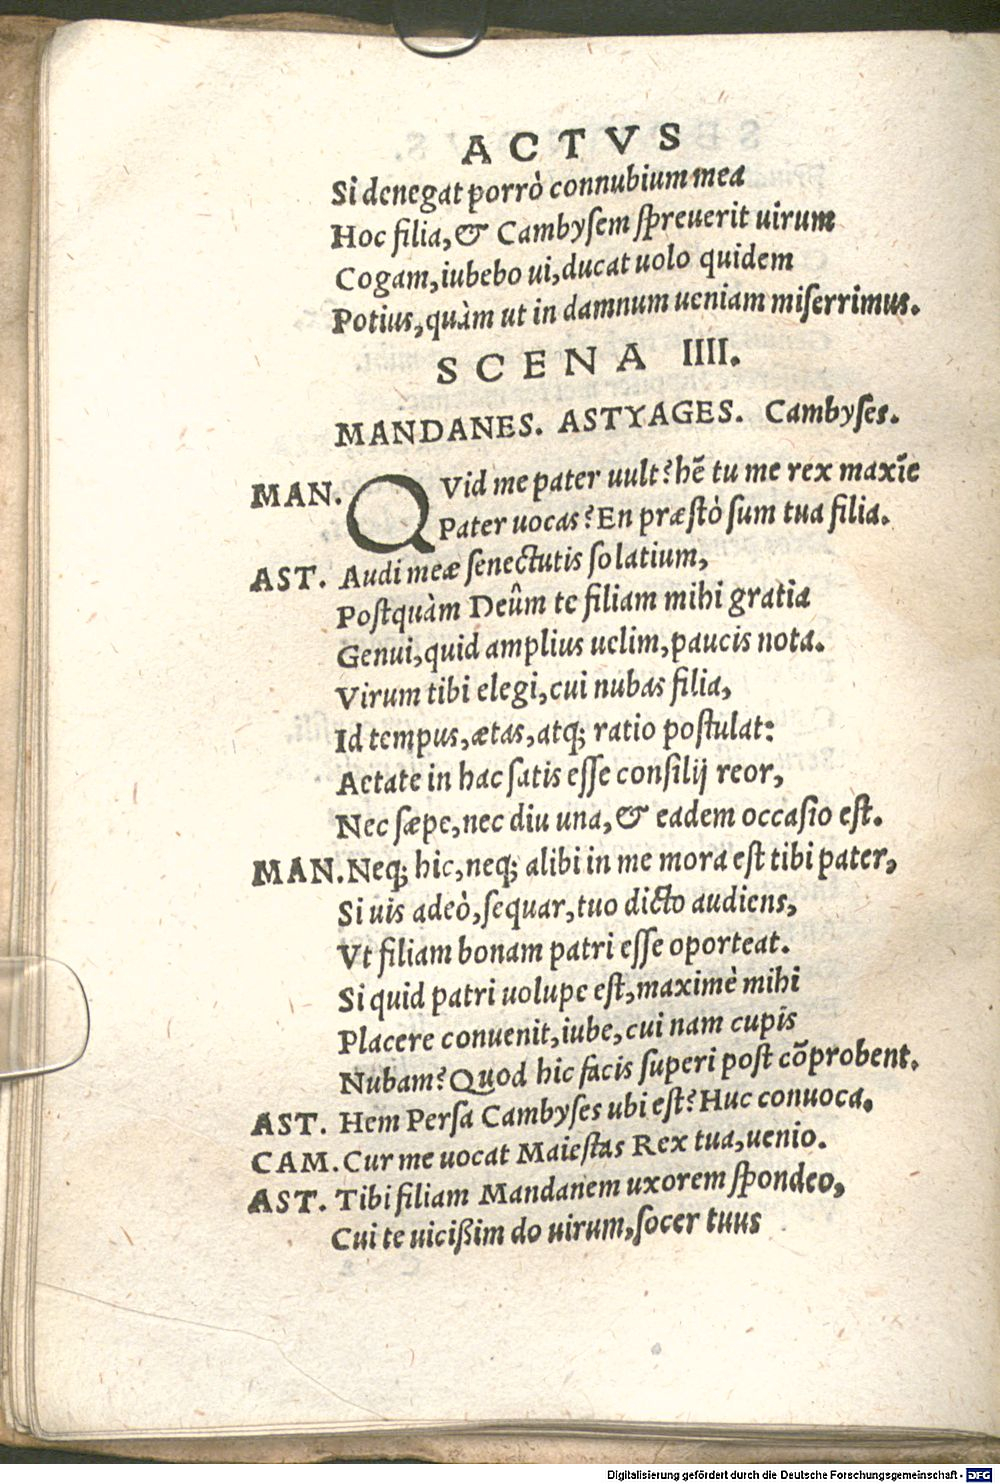 ACTVS
Si denegat porrò connubium mea
Hoc filia, & Cambysem spreuerit uirum
Cogam, iubebo ui, ducat uolo quidem
Potius, quàm ut in damnum ueniam miserrimus.
SCENA IIII.
MANDANES. ASTYAGES. Cambyses.
MAN. QVid me pater uult? hē tu me rex maxīe
Pater uocas? En præstò sum tua filia.
AST. Audi meæ senectutis solatium,
Postquàm Deûm te filiam mihi gratia
Genui, quid amplius uelim, paucis nota.
Virum tibi elegi, cui nubas filia,
Id tempus, ætas, atq; ratio postulat:
Aetate in hac satis esse consilij reor,
Nec sæpe, nec diu una, & eadem occasio est.
MAN. Neq; hic, neq; alibi in me mora est tibi pater,
Si uis adeò, sequar, tuo dicto audiens,
Vt filiam bonam patri esse oporteat.
Si quid patri uolupe est, maximè mihi
Placere conuenit, iube, cui nam cupis
Nubam? Quod hic facis superi post cōprobent.
AST. Hem Persa Cambyses ubi est? Huc conuoca.
CAM. Cur me uocat Maiestas Rex tua, uenio.
AST. Tibi filiam Mandanem uxorem spondeo,
Cui te uicißim do uirum, socer tuus
Digitalisierung gefördert durch die Deutsche Forschungsgemeinschaft - DFG